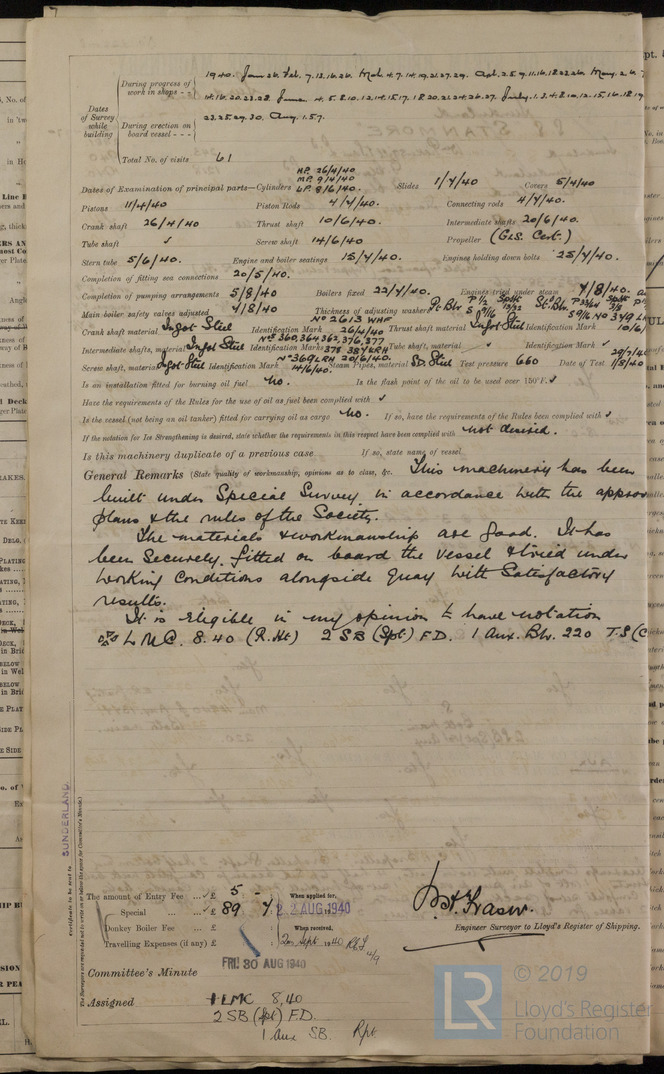 During progress of work in shops - - 1940. Jan 26. Feb. 7. 13. 16. 26. Mch. 4. 7. 14. 19. 21. 27. 29. Apl. 2. 5. 9. 11. 16. 18. 22. 26. May. 2. 6. 7
14. 16. 20. 23. 28 June. 4. 5. 8. 10. 12. 14. 15. 17. 18 20. 21. 24. 26. 27. July. 1. 3. 4. 8. 10. 12. 15. 16. 18 19
Dates of Survey while building
During erection on board vessel - - - 23. 25. 29. 30. Aug. 1. 5. 7.
Total No. of visits 61
H.P. 26/4/40
M.P. 9/4/40
Dates of Examination of principal parts—Cylinders L.P. 8/6/40. Slides 1/7/40 Covers 5/4/40
Pistons 11/4/40 Piston Rods 4/4/40. Connecting rods 4/4/40.
Crank shaft 26/4/40 Thrust shaft 10/6/40. Intermediate shafts 20/6/40.
Tube shaft ✓ Screw shaft 14/6/40 Propeller (G&S. Cert.)
Stern tube 5/6/40. Engine and boiler seatings 15/7/40. Engines holding down bolts 25/7/40.
Completion of fitting sea connections 20/5/40.
Completion of pumping arrangements 5/8/40 Boilers fixed 22/7/40. Engines tried under steam 7/8/40.
Main boiler safety valves adjusted 7/8/40 Thickness of adjusting washers
Crank shaft material Ingot Steel Identification Mark No 2613 WHF 26/4/40 Thrust shaft material Ingot Steel Identification Mark 10/6/
Intermediate shafts, material Ingot Steel Identification Marks Nos 360, 364, 362, 376, 377 Tube shaft, material Identification Mark ✓
Screw shaft, material Ingot Steel Identification Mark No 369 LRH 14/6/40. Steam Pipes, material S.D. Steel Test pressure 660 Date of Test
Is an installation fitted for burning oil fuel No. Is the flash point of the oil to be used over 150°F. ✓
Have the requirements of the Rules for the use of oil as fuel been complied with ✓
Is the vessel (not being an oil tanker) fitted for carrying oil as cargo No. If so, have the requirements of the Rules been complied with ✓
If the notation for Ice Strengthening is desired, state whether the requirements in this respect have been complied with Not desired.
Is this machinery duplicate of a previous case If so, state name of vessel
General Remarks (State quality of workmanship, opinions as to class, &c. This machinery has been
built under Special Survey in accordance with the approv
plans & the rules of the Society.
The materials & workmanship are good. It has
been securely fitted on board the vessel & tried under
working conditions alongside quay with satisfactory
results.
It is eligible in my opinion to have notation
L M C. 8.40 (R. Ht) 2 SB (Spt) F.D. 1 Aux. Blr. 220 T.S (C
SUNDERLAND
Certificate to be sent to
The amount of Entry Fee ... £ 5 - When applied for,
Special ... ... £ 89 7 22 AUG 1940
Donkey Boiler Fee ... £ When received,
Travelling Expenses (if any) £ 2nd Sept 1940
W.H. Fraser.
Engineer Surveyor to Lloyd's Register of Shipping.
FRI. 30 AUG 1940
Committee's Minute
Assigned + LMC 8.40
2 SB (Spt) F.D.
1 Aux SB. Rpt
LR © 2019
Lloyd's Register
Foundation